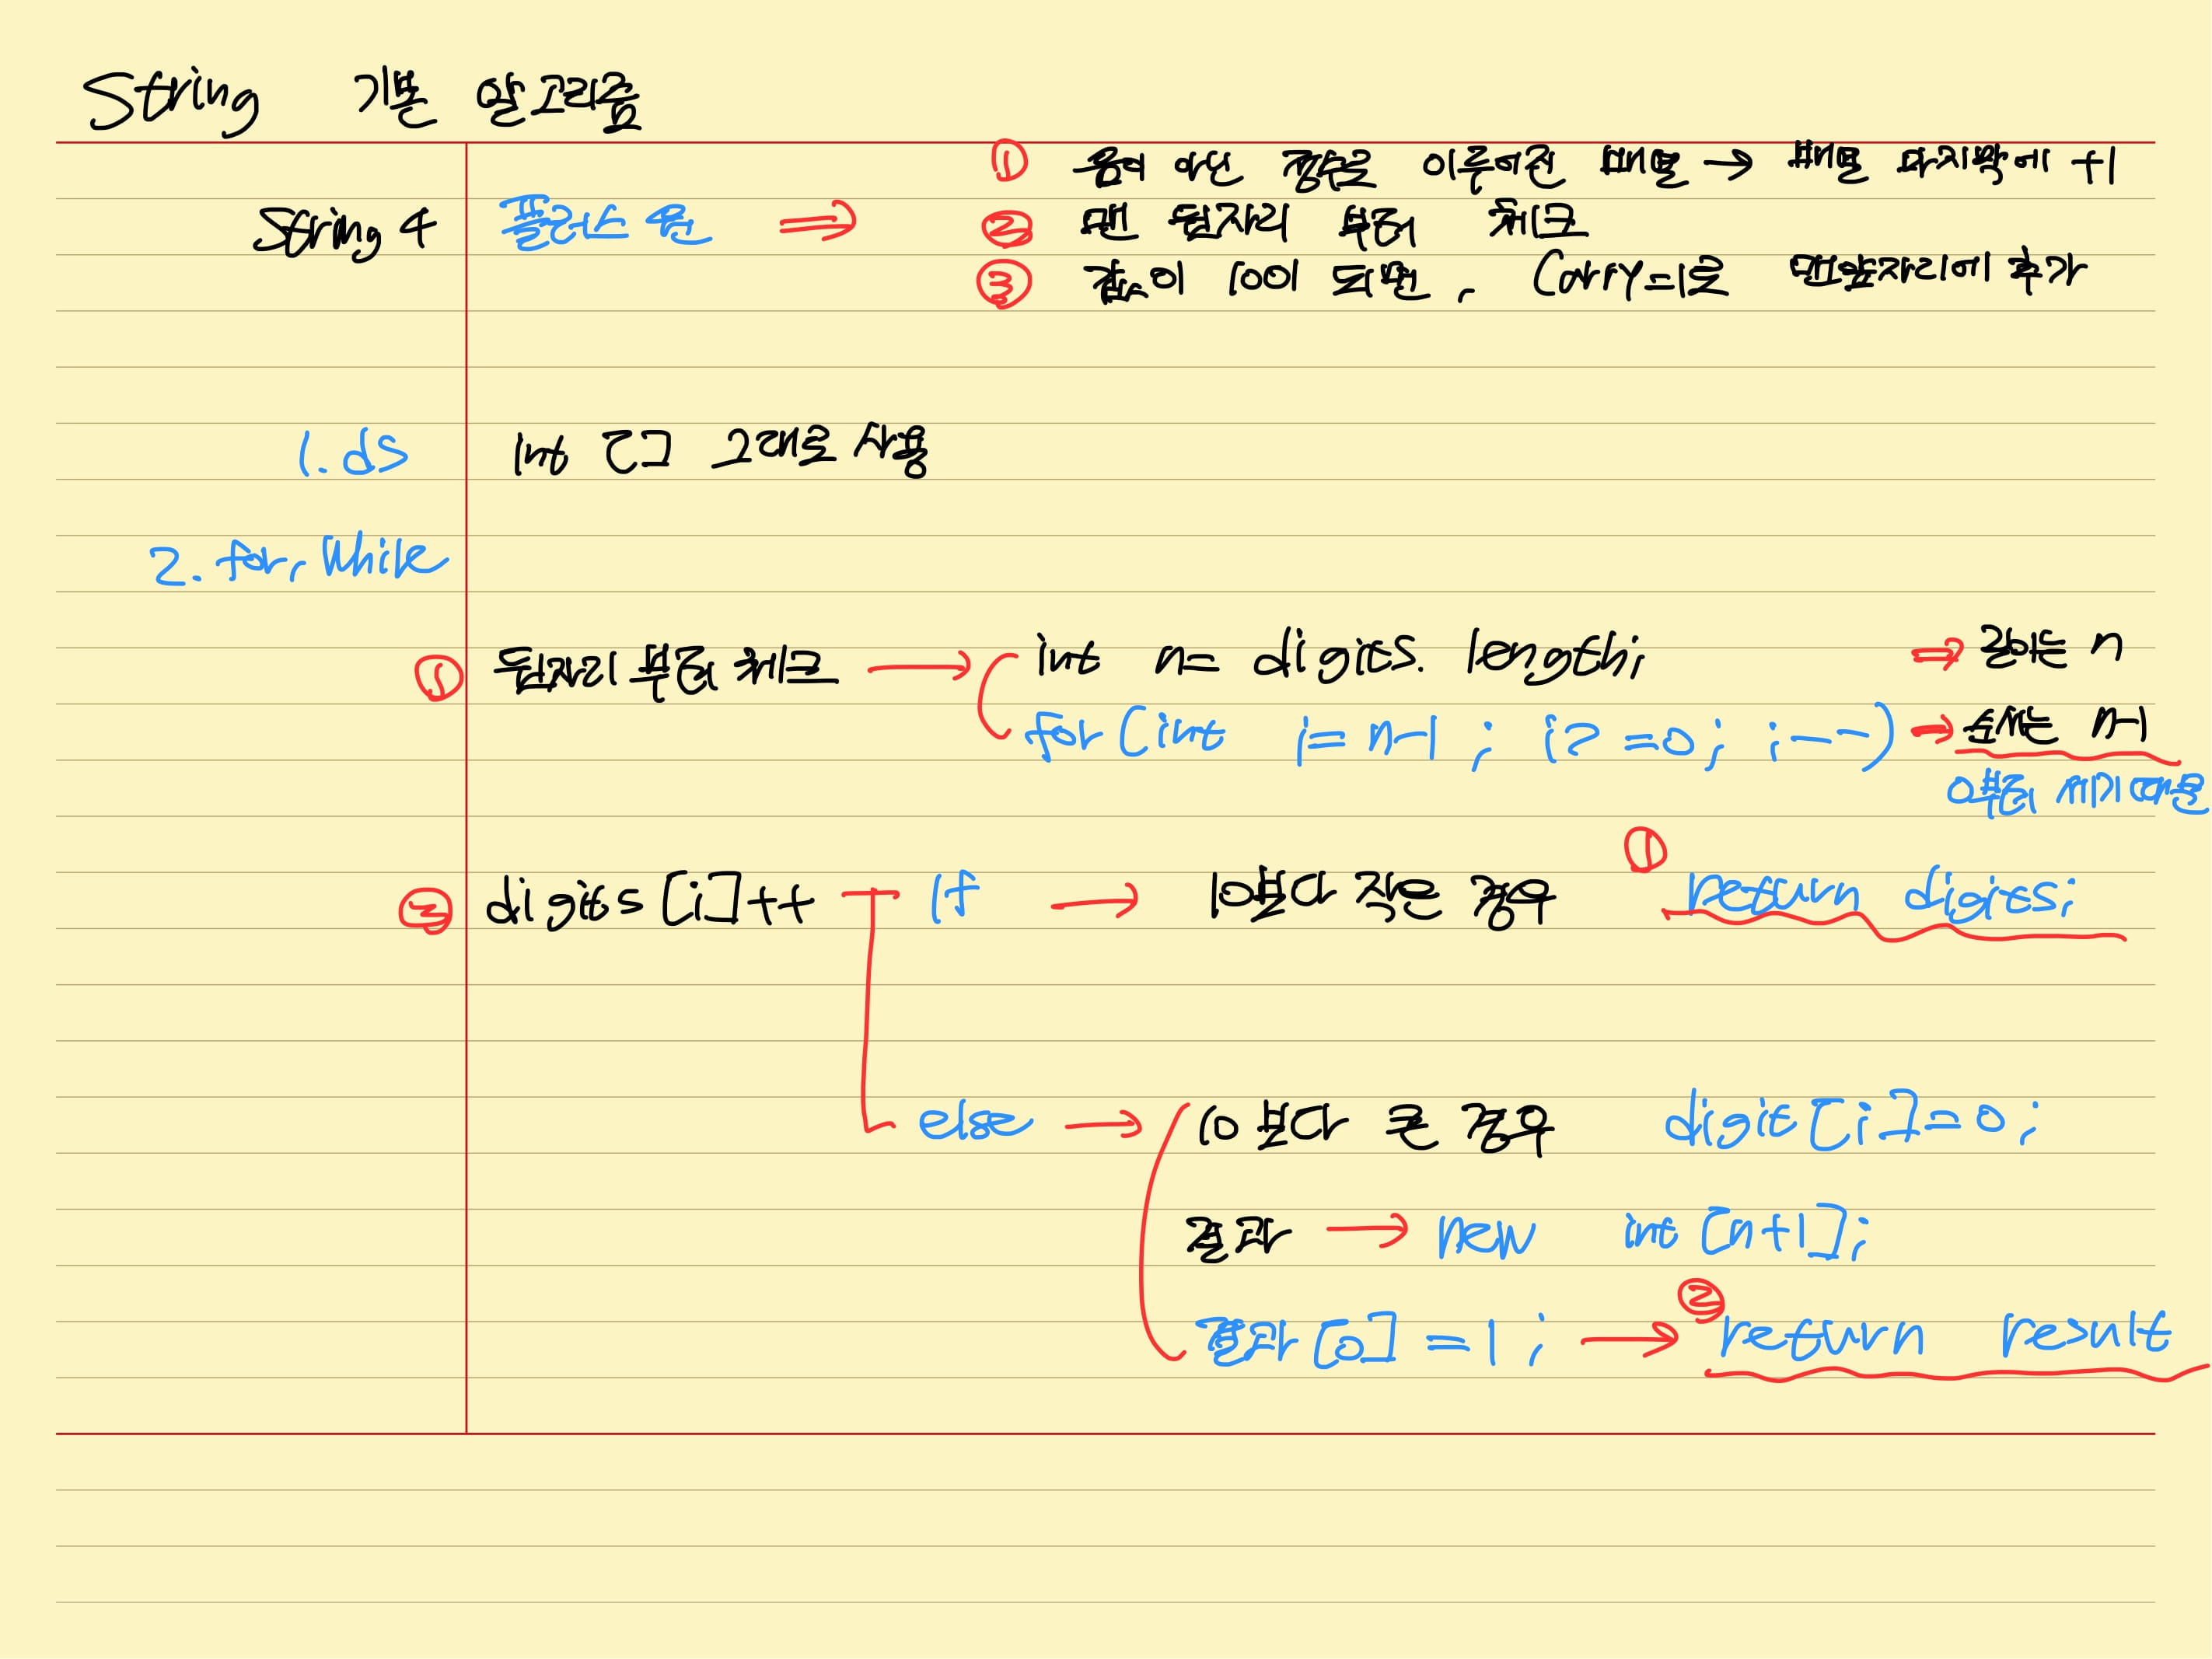 String 기본 알고리즘
① 음이 아닌 정수로 이루어진 배열 → 배열 마지막에 +1
String 4 플러스 원 ⇒ ② 맨 뒷자리 부터 체크
③ 값이 10이 되면, Carry=1로 맨앞자리에 추가
1. ds int [] 그대로 사용
2. for, While
① 뒷자리 부터 체크 → int n= digits. length; ⇒ 길이는 n
for (int i= n-1 ; i>=0; i--) → 숫자는 n-1
0부터
② digits [i]++ If → 10보다 작은 경우 ① return digits;
else → 10보다 큰 경우 digit[i]=0;
결과 → new int [n+1];
결과[0] = 1; → ② return result